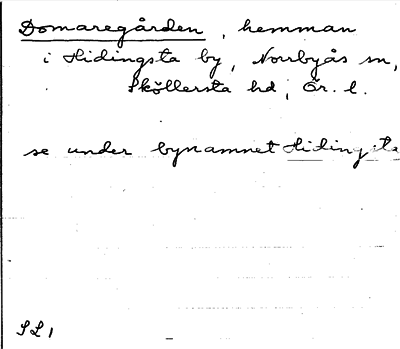 Domaregården, hemman
i Hidingsta by, Norrbyås sn,
Sköllersta hd, Ör. l.
se under bynamnet Hidingsta
SL 1